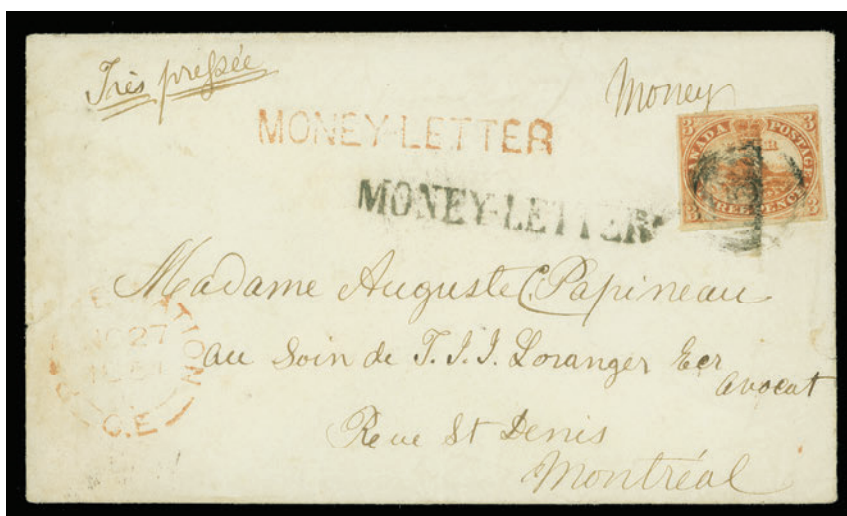 Très pressée
Money
MONEY-LETTER
MONEY-LETTER
3 CANADA POSTAGE 3
3 THREE PENCE 3
Madame Auguste C. Papineau
au Soin de T. J. J. Loranger Ecr
avocat
Rue St Denis
Montréal
27
C.E